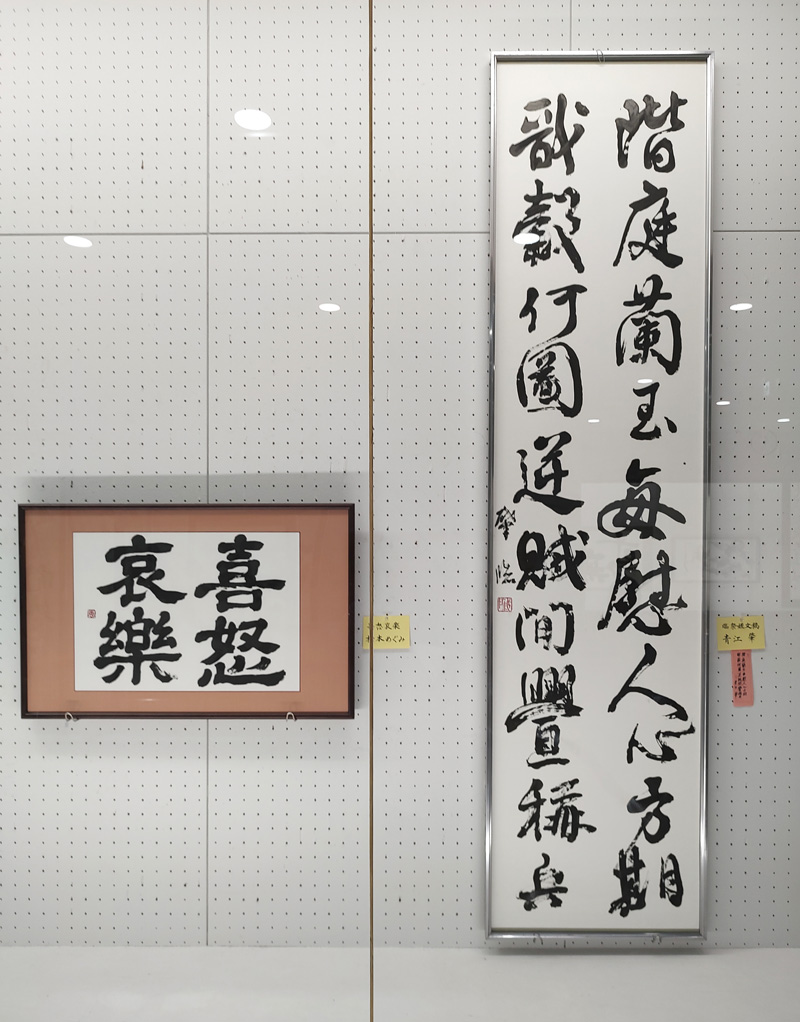 階庭蘭玉每慰人心方期
戩穀何圖逆賊間釁稱兵
肇臨
臨祭姪文稿
青江 肇
喜怒
哀樂
喜怒哀楽
本めぐみ